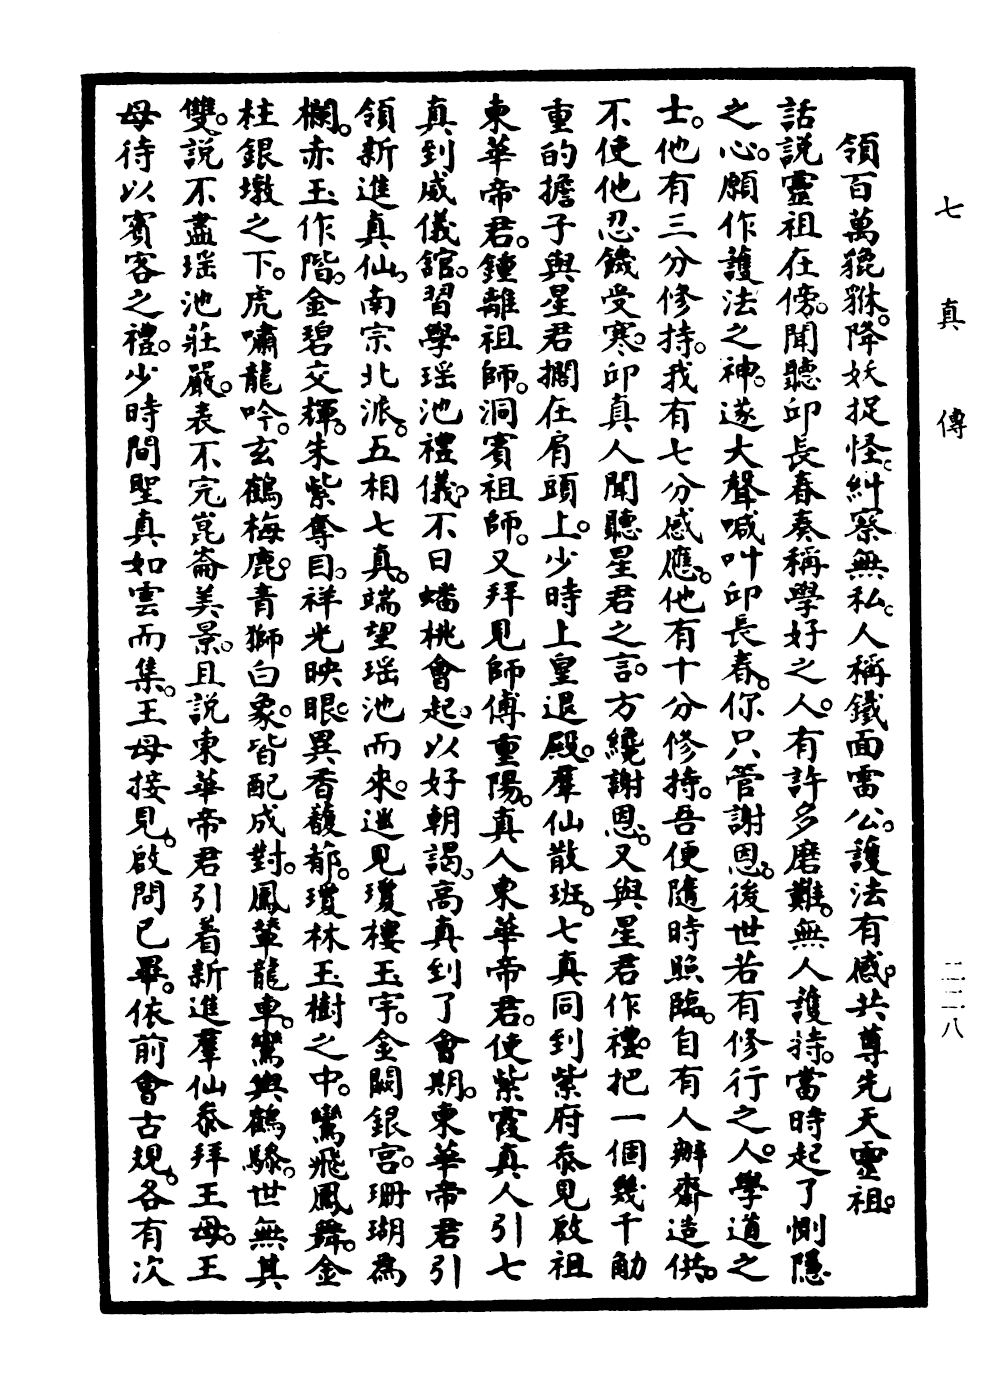 七真傳
二二八
領百萬貔貅。降妖捉怪。糾察無私。人稱鐵面雷公。護法有感。共尊先天靈祖。
話說靈祖在傍。聞聽邱長春奏稱學好之人。有許多磨難。無人護持。當時起了惻隱
之心。願作護法之神。遂大聲喊叫邱長春。你只管謝恩。後世若有修行之人。學道之
士。他有三分修持。我有七分感應。他有十分修持。吾便隨時照臨。自有人辦齋造供。
不使他忍饑受寒。邱真人聞聽星君之言。方纔謝恩。又與星君作禮。把一個幾千觔
重的擔子與星君擱在肩頭上。少時上皇退殿。羣仙散班。七真同到紫府叅見啟祖
東華帝君。鍾離祖師。洞賓祖師。又拜見師傅重陽。真人東華帝君。使紫霞真人引七
真到威儀舘。習學瑶池禮儀。不日蟠桃會起。以好朝謁。高真到了會期。東華帝君引
領新進真仙。南宗北派。五相七真。端望瑶池而來。遊見瓊樓玉宇。金闕銀宫。珊瑚為
欄。赤玉作階。金碧交輝。朱紫奪目。祥光映眼。異香馥郁。瓊林玉樹之中。鸞飛鳳舞。金
柱銀墩之下。虎嘯龍吟。玄鶴梅鹿。青獅白象。皆配成對。鳳輦龍車。鸞輿鶴驂。世無其
雙。說不盡瑶池莊嚴。表不完崑崙美景。且説東華帝君引着新進羣仙叅拜王母。王
母待以賓客之禮。少時間聖真如雲而集。王母接見。啟問已畢。依前會古規。各有次